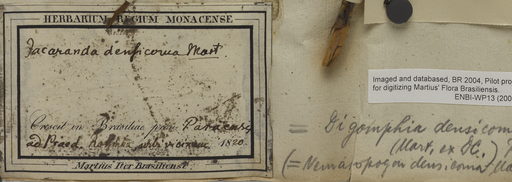 HERBARIUM REGIUM MONACENSE
Jacaranda densicoma Mart
Crescit in Brasiliae prov. Paraens
ad Praed. urbi vicinum 1820.
Martii Iter Brasiliense.
Imaged and databased, BR 2004, Pilot pro
for digitizing Martius' Flora Brasiliensis.
ENBI-WP13 (200
= Digomphia densicoma
(Mart. ex DC.)
(= Nematopogon densicoma